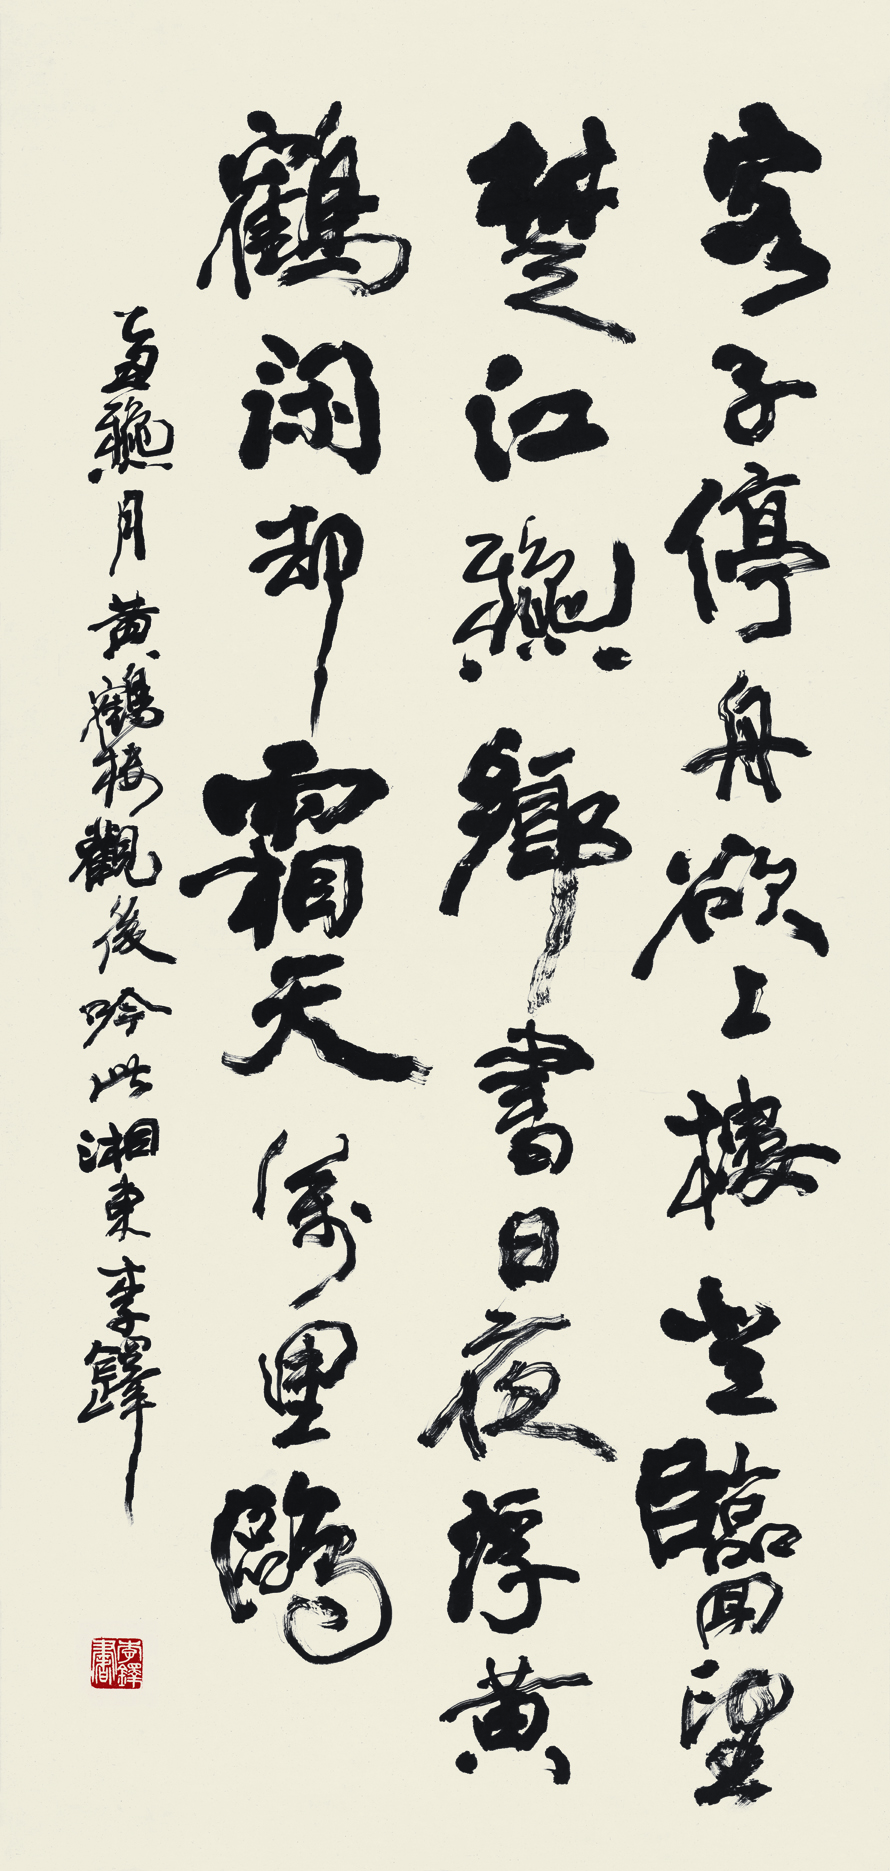 客子停舟欲上樓登臨回望
楚江龝鄉書日夜浮黄
鶴閑却霜天萬里鷗
乙丑龝月黄鶴樓觀後吟此湘東李鐸
李鐸書